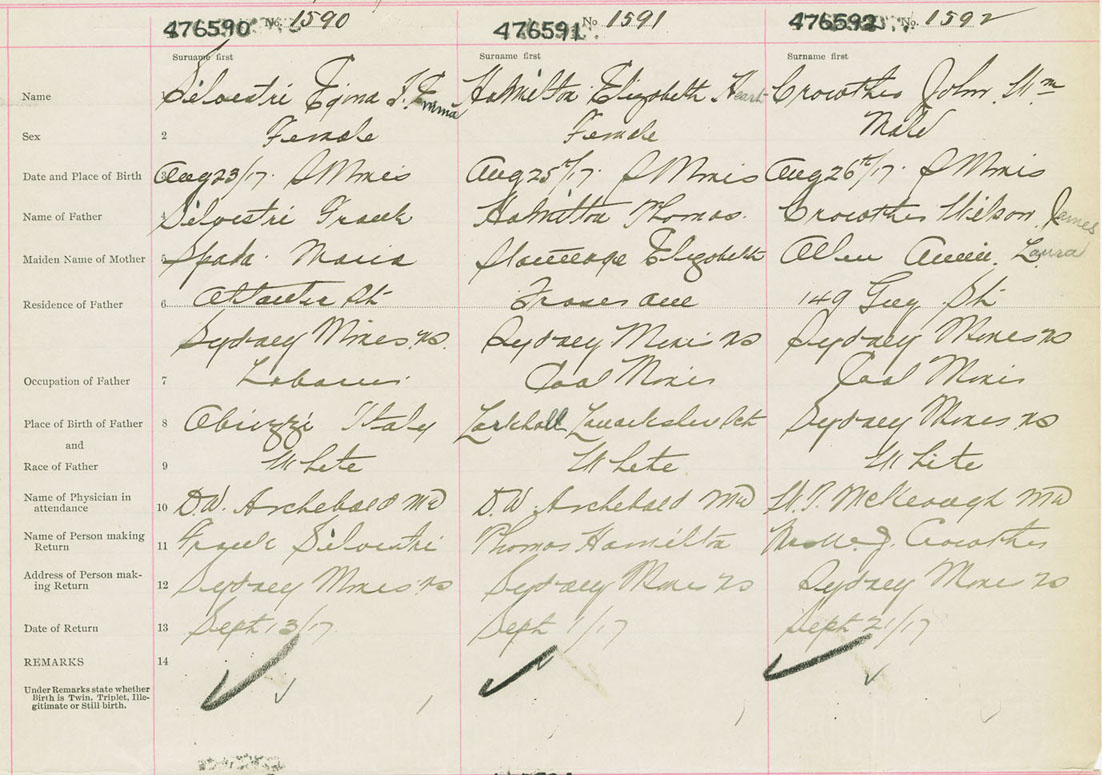 476590 No. 1590
476591 No 1591
476592 No. 1592
Surname first
Surname first
Surname first
Name 1 Silvestri Egina J. Emma Hamilton Elizabeth Crowther John Wm
Sex 2 Female Female Male
Date and Place of Birth 3 Aug 23/17. S Mines Aug 25th/17. S Mines Aug 26th/17. S Mines
Name of Father 4 Silvestri Frank Hamilton Thomas. Crowther Wilson James
Maiden Name of Mother 5 Spada. Maria Elizabeth Allen Annie. Laura
Residence of Father 6 Atlantic St Fraser ave 149 Guy St
Sydney Mines. NS. Sydney Mines NS Sydney Mines NS
Occupation of Father 7 Laborer. Coal Miner Coal Miner
Place of Birth of Father 8 Abruzzi Italy Larkhall Sydney Mines NS
and
Race of Father 9 White White White
Name of Physician in
attendance 10 D.W. Archebald MD D.W. Archebald MD McKeough MD
Name of Person making
Return 11 Frank Silvestri Thomas Hamilton J. Crowther
Address of Person mak-
ing Return 12 Sydney Mines NS Sydney Mines NS Sydney Mines NS
Date of Return 13 Sept 13/17 Sept 1/17 Sept 21/17
REMARKS 14
Under Remarks state whether
Birth is Twin, Triplet, Ille-
gitimate or Still birth.